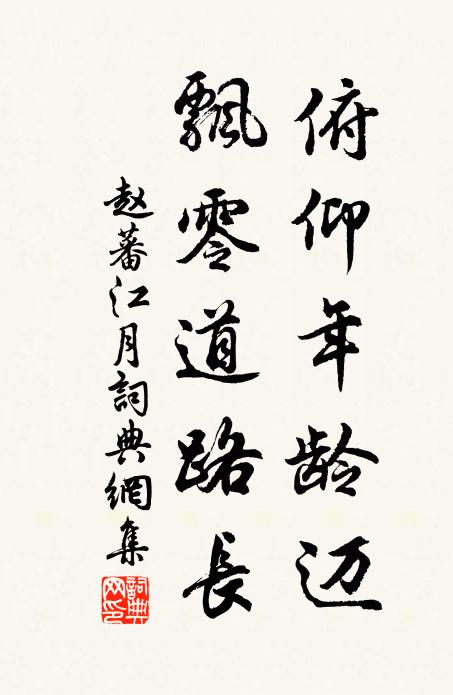 俯仰年龄迈
飘零道路長
赵蕃江月詞典網集
詞典网印